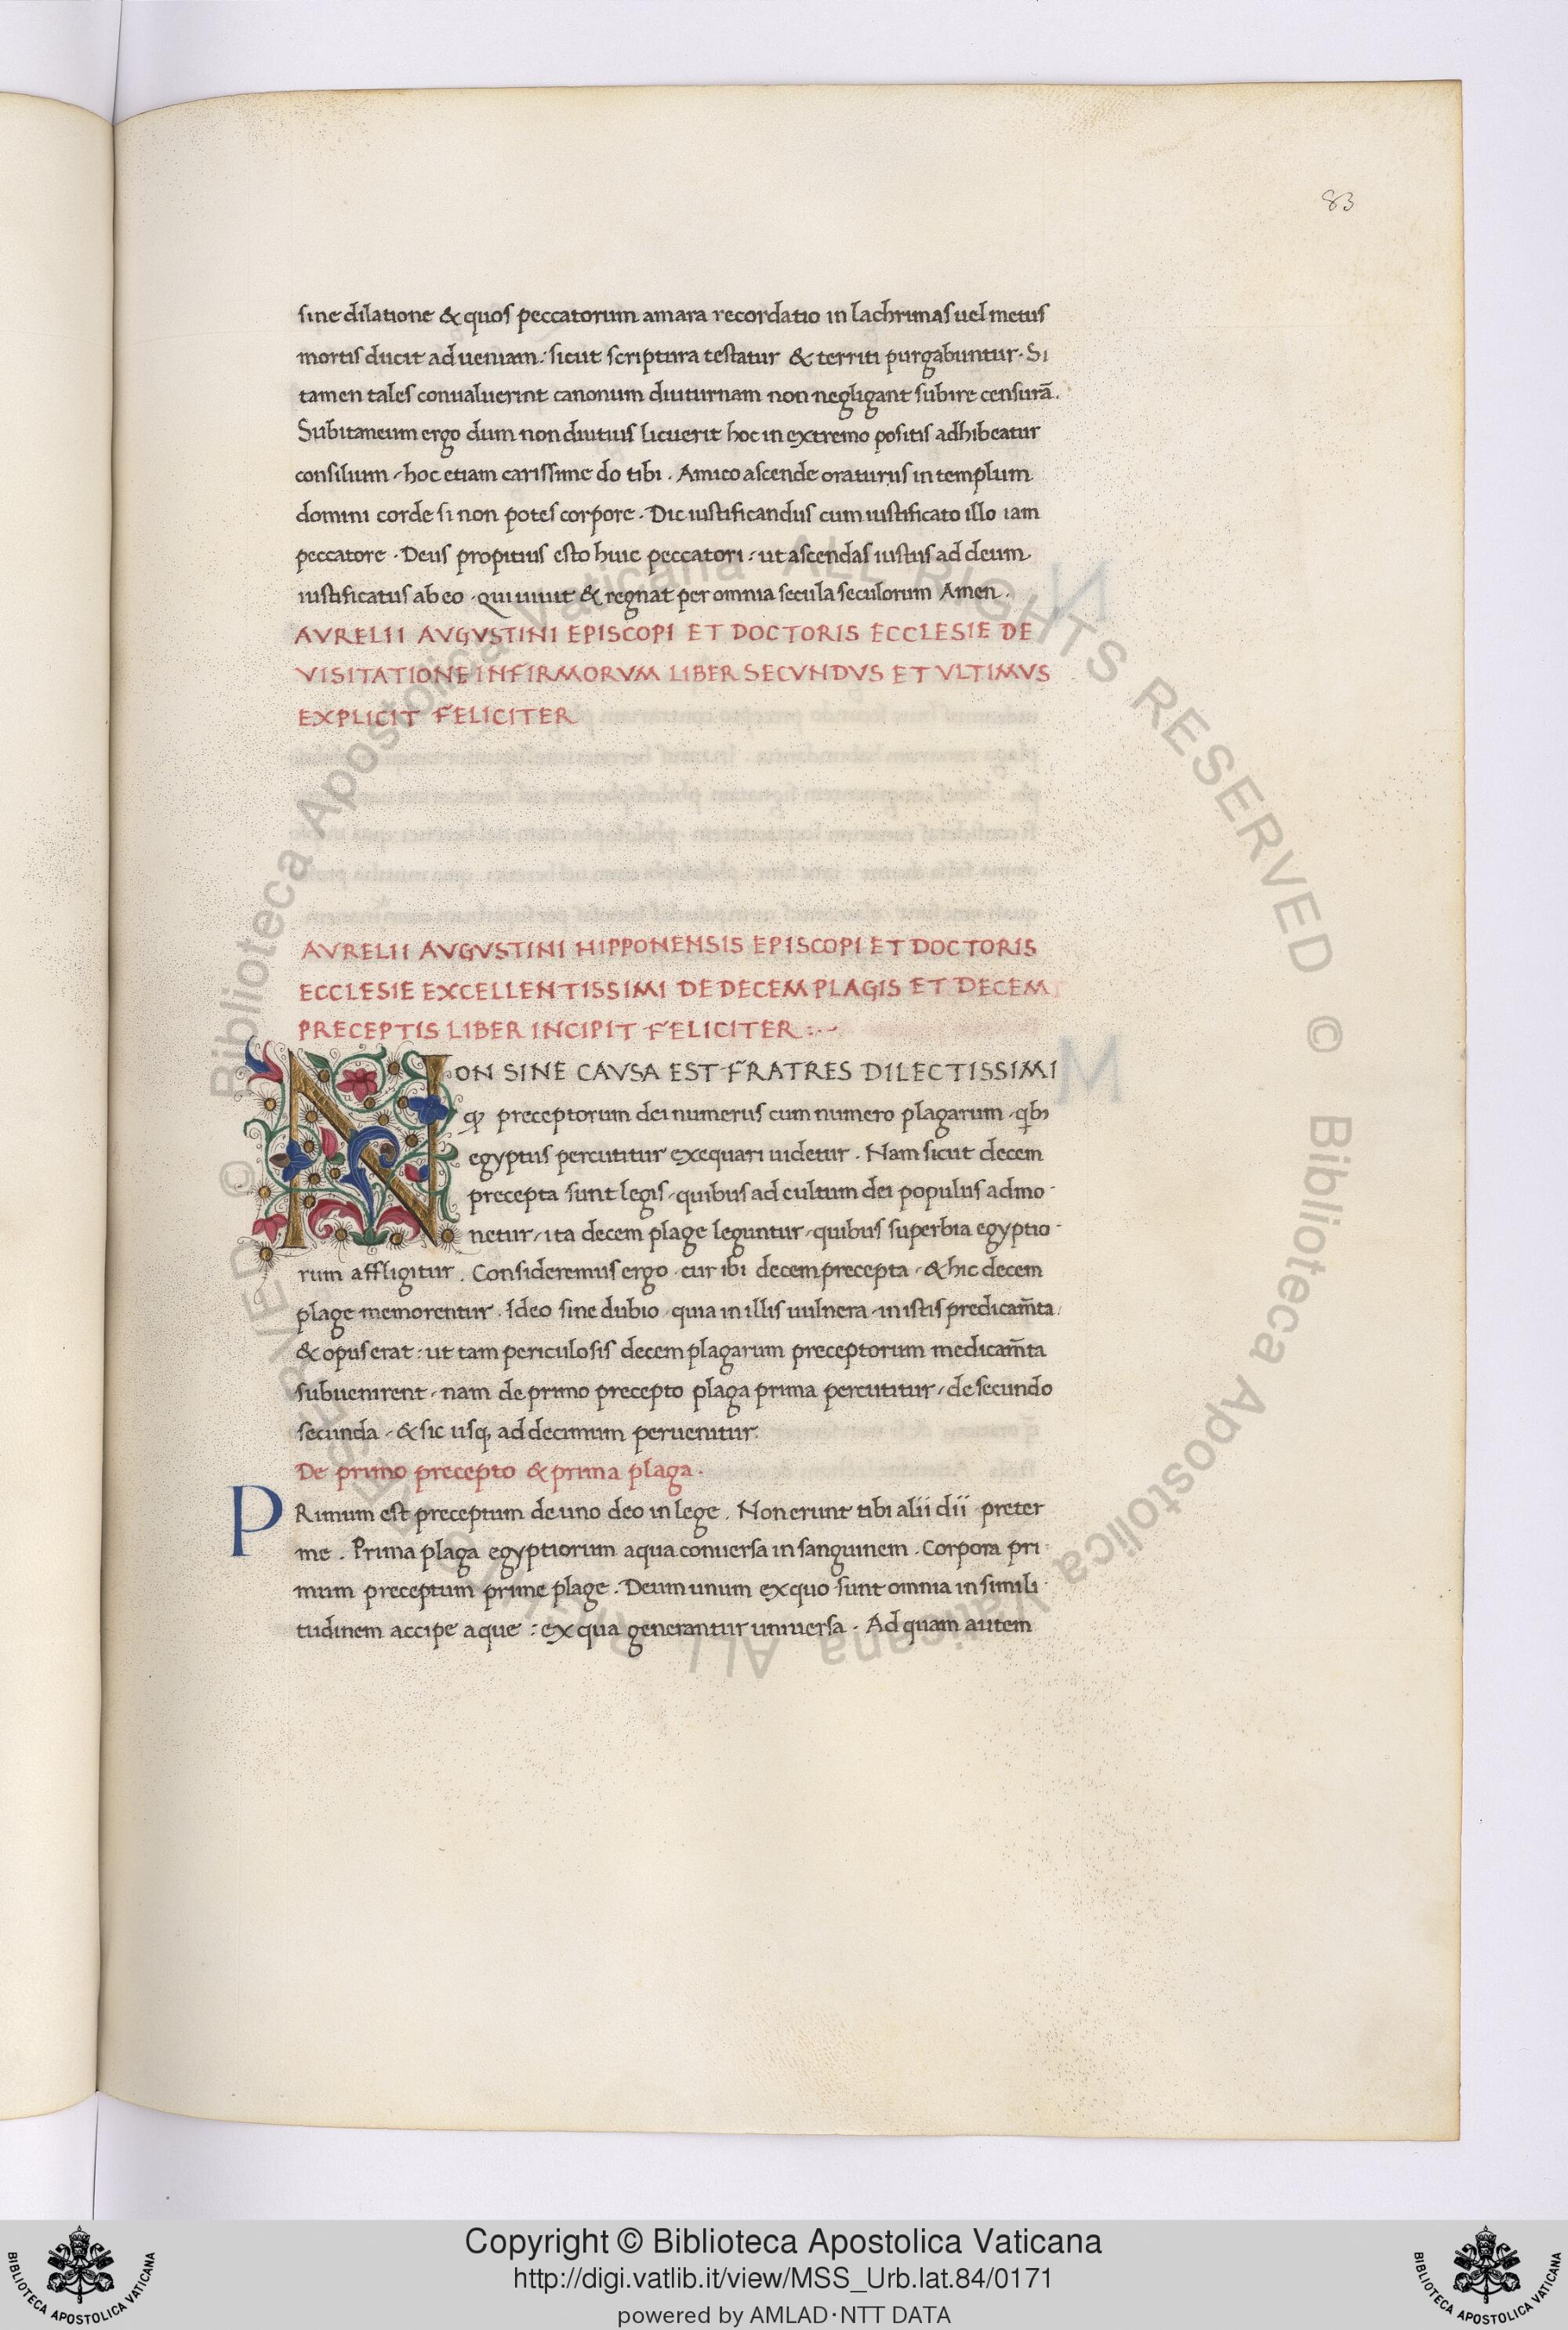 83
sine dilatione & quos peccatorum amara recordatio in lachrimas uel metus
mortis ducit ad ueniam: sicut scriptura testatur & territi purgabuntur. Si
tamen tales conualuerint canonum diuturnam non negligant subire censurā.
Subitaneum ergo dum non diutius licuerit hoc in extremo positis adhibeatur
consilium, hoc etiam carissime do tibi. Amico ascende oraturus in templum
domini corde si non potes corpore. Dic iustificandus cum iustificato illo iam
peccatore. Deus propitius esto huic peccatori: ut ascendas iustus ad deum
iustificatus ab eo. qui uiuit & regnat per omnia secula seculorum Amen.
AVRELII AVGVSTINI EPISCOPI ET DOCTORIS ECCLESIE DE
VISITATIONE INFIRMORVM LIBER SECVNDVS ET VLTIMVS
EXPLICIT FELICITER
AVRELII AVGVSTINI HIPPONENSIS EPISCOPI ET DOCTORIS
ECCLESIE EXCELLENTISSIMI DE DECEM PLAGIS ET DECEM
PRECEPTIS LIBER INCIPIT FELICITER:
NON SINE CAVSA EST FRATRES DILECTISSIMI
ꝙ preceptorum dei numerus cum numero plagarum, qbꝫ
egyptus percutitur exequari uidetur. Nam sicut decem
precepta sunt legis, quibus ad cultum dei populus admo-
netur, ita decem plage leguntur, quibus superbia egyptio-
rum affligitur. Consideremus ergo, cur ibi decem precepta, & hic decem
plage memorentur. Ideo sine dubio, quia in illis uulnera, in istis predicam̄ta,
& opus erat: ut tam periculosis decem plagarum preceptorum medicam̄ta
subuenirent, nam de primo precepto plaga prima percutitur, de secundo
secunda, & sic usq; ad decimum peruenitur.
De primo precepto & prima plaga.
PRimum est preceptum de uno deo in lege. Non erunt tibi alii dii preter
me. Prima plaga egyptiorum aqua conuersa in sanguinem. Corpora pri-
mum preceptum prime plage. Deum unum ex quo sunt omnia in simili-
tudinem accipe aque: ex qua generantur uniuersa. Ad quam autem
© Biblioteca Apostolica Vaticana ALL RIGHTS RESERVED © Biblioteca Apostolica Vaticana ALL RIGHTS RESERVED
Copyright © Biblioteca Apostolica Vaticana
http://digi.vatlib.it/view/MSS_Urb.lat.84/0171
powered by AMLAD·NTT DATA
BIBLIOTECA APOSTOLICA VATICANA
BIBLIOTECA APOSTOLICA VATICANA